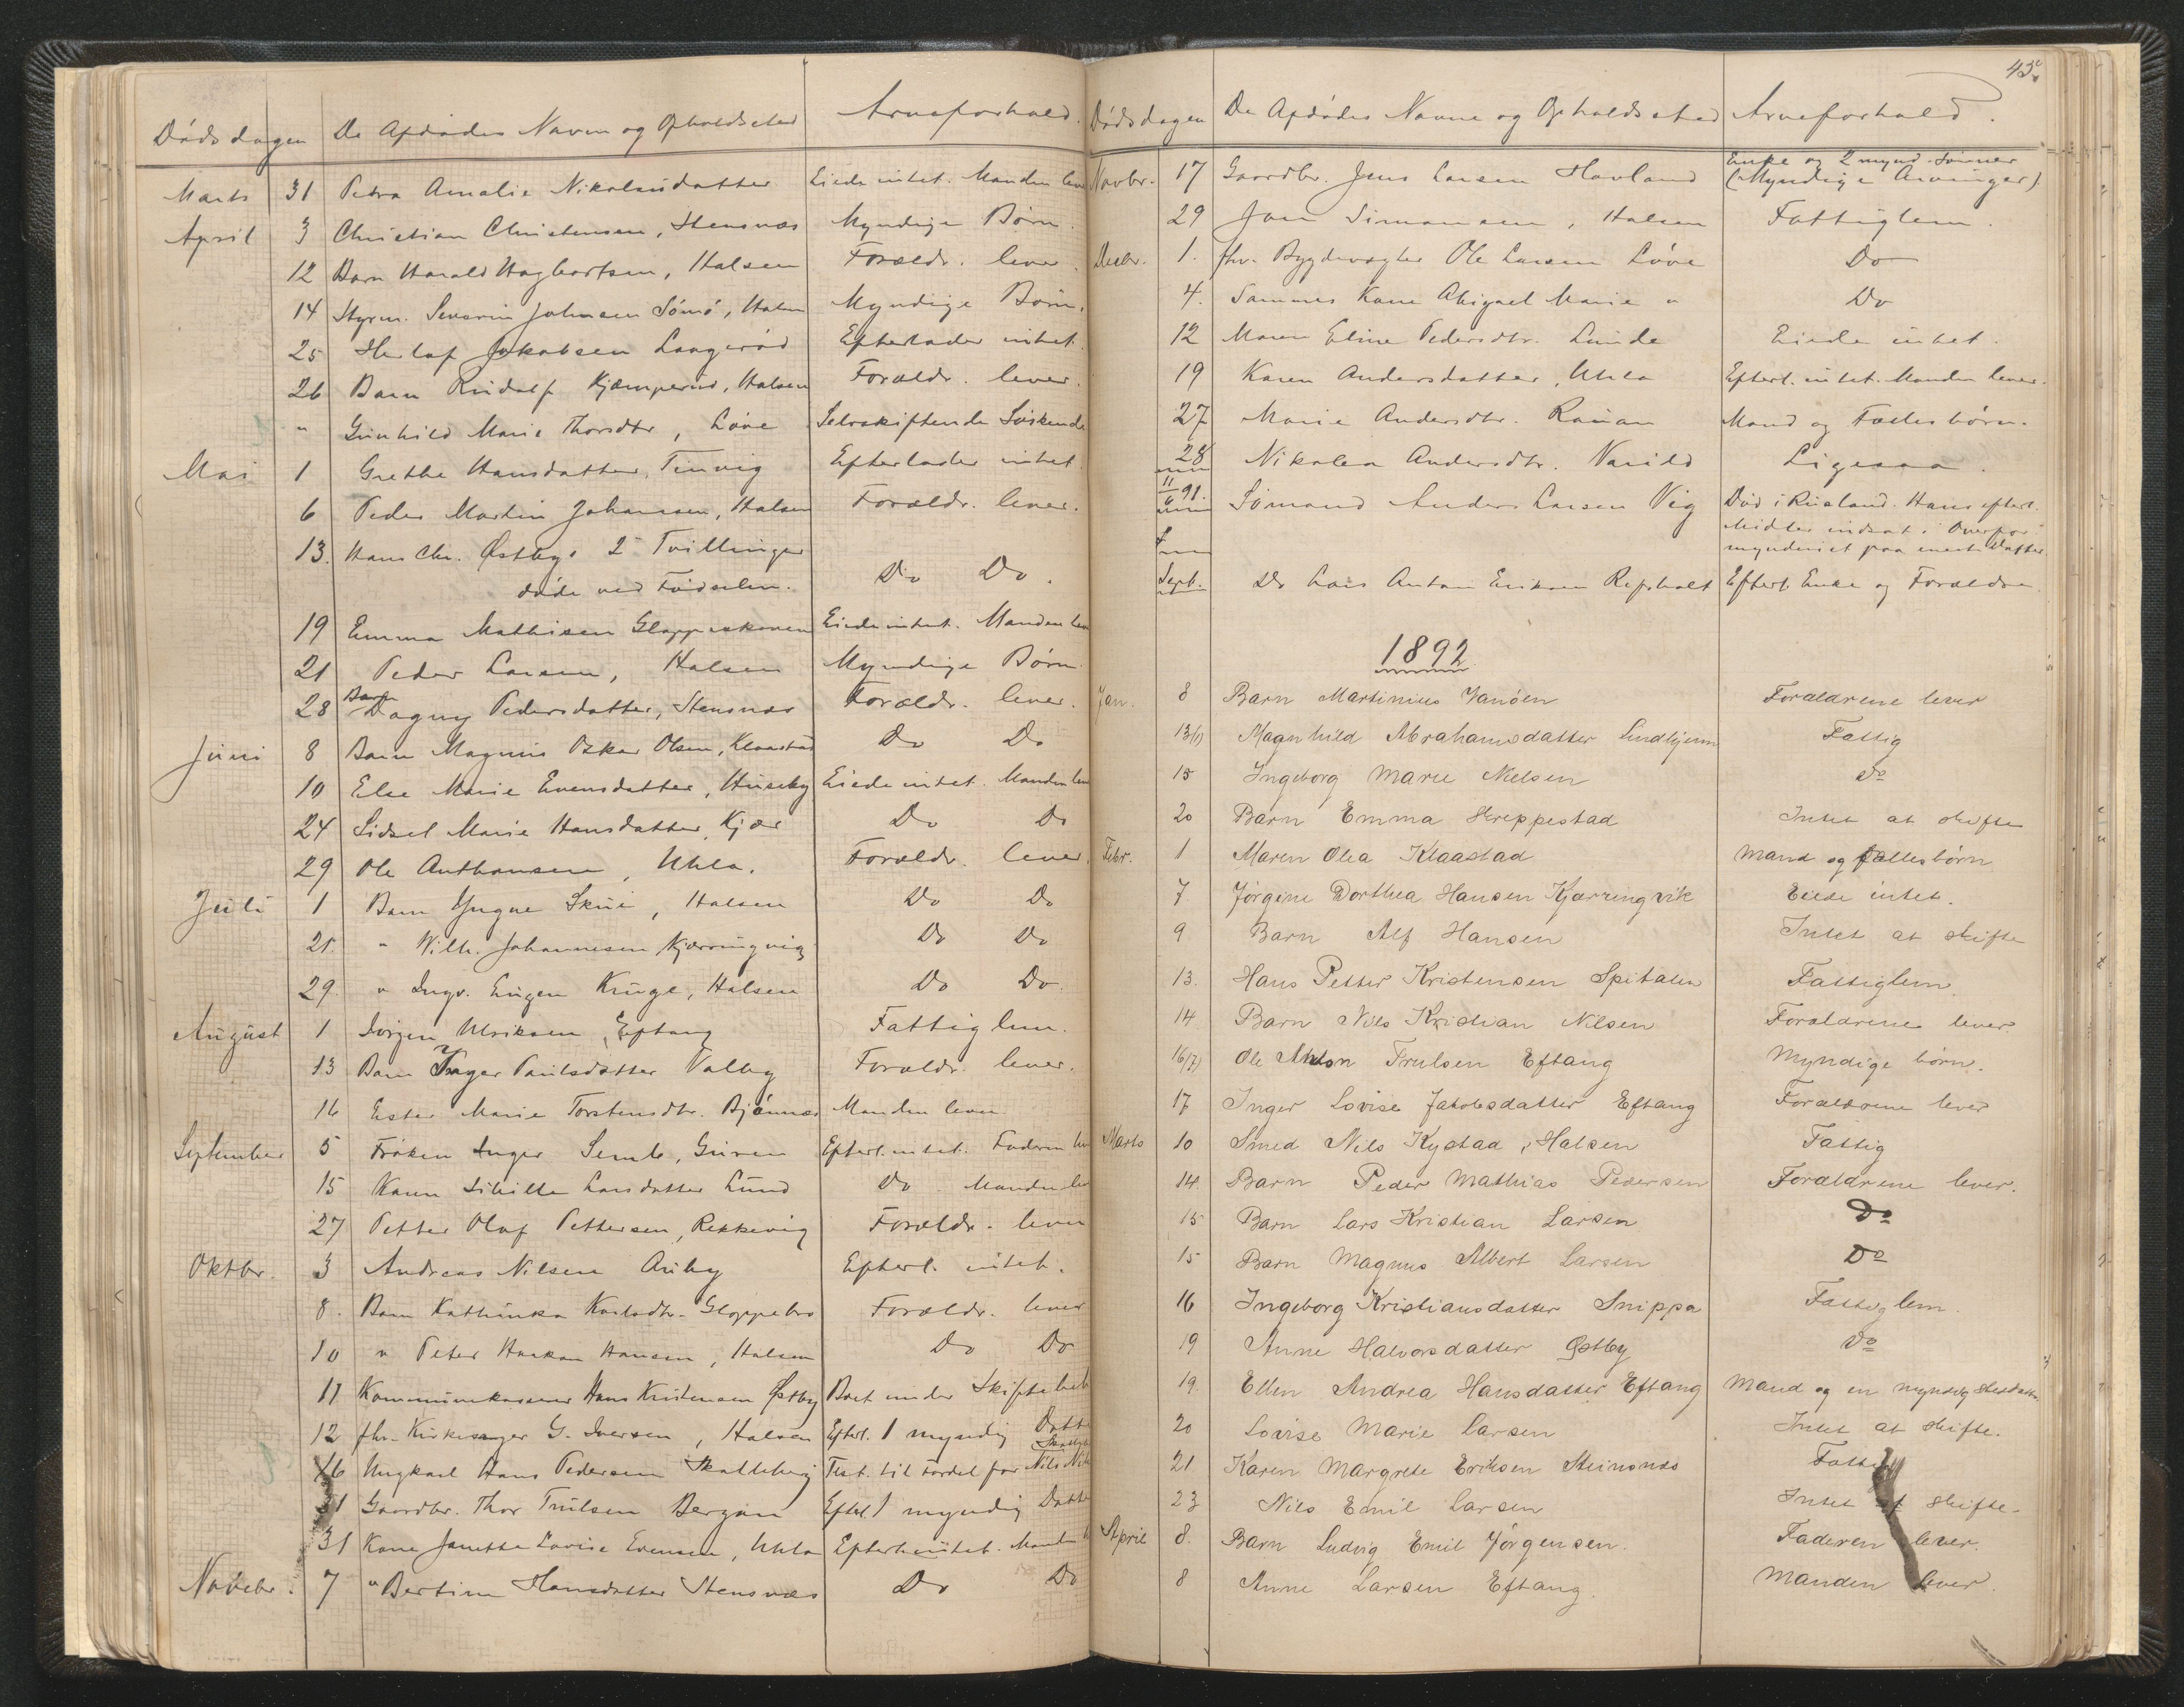 Dødsdagen De Afdødes Navne og Opholdssted Arveforhold.
Marts 31 Petra Amalie Nikolaisdatter Eiede intet. Manden lever
April 3 Christian Christensen, Stensnæs Myndige Børn.
12 Barn Harald Hagbartsen, Halsen Forældr. lever.
14 Styrm. Severin Johnsen Sømø, Halsen Myndige Børn.
25 Herlof Jakobsen Laagerød Efterlader intet.
26 Barn Rudolf Kjæmperud, Halsen Forældr. lever.
" Gunhild Marie Thorsdtr, Løve Selvskiftende Søskende
Mai 1 Grethe Hansdatter, Tinvig Efterlader intet.
6 Peder Martin Johansen, Halsen Forældr. lever.
13. Hans Chr. Østbys 2 Tvillinger
døde ved Fødselen. Do Do.
19 Emma Mathisen Gloppeskoven Eiede intet. Manden lever
21 Peder Larsen, Halsen Myndige Børn
28 Barn Dagny Pedersdatter, Stensnæs Forældr. lever.
Juni 8 Barn Magnus Oskar Olsen, Klaastad Do Do
10 Else Marie Evensdatter, Huseby Eiede intet. Manden lever
24 Sidsel Marie Hansdatter, Kjær Do Do
29 Ole Anthonsen, Uhla. Forældr. lever.
Juli 1 Barn Yngve Skui, Halsen Do Do
21. " Wilh. Johannesen Kjærringvig Do Do
29. " Ingv. Eugen Kruge, Halsen Do Do.
August 1 Jørgen Ulriksen, Eftang Fattiglem.
13 Barn Inger Paulsdatter Valby Forældr. lever.
16 Ester Marie Torstensdtr. Bjønnes Manden lever
September 5 Frøken Inger Semb, Guren Efterl. intet. Faderen lever
15 Kone Sibille Larsdatter Lund Do. Manden lever
27 Petter Olaf Pettersen, Rekkevig Forældr. lever
Oktbr. 3 Andreas Nilsen Auby Efterl. intet.
8. Barn Kathinka Karlsdtr. Gloppebro Forældr. lever
10 " Peter Haakon Hansen, Halsen Do Do
11 Kommunekasserer Hans Kristensen Østby Boet under Skiftebeh
12 fhv. Kirkesanger G. Iversen, Halsen Efterl. 1 myndig Datter
16 Ungkarl Hans Pedersen Skalleberg Test. til Fordel for Nils
21 Gaardbr. Thor Trulsen Bergan Efterl. 1 myndig Datter
31 Kone Janette Lovise Evensen, Uhla Efterl. intet. Manden
Novebr. 7 " Bertine Hansdatter Stensnæs Do Do
45
Dødsdagen De Afdødes Navne og Opholdssted Arveforhold.
Novbr. 17 Gaardbr. Jens Larsen Havland Enke og 2 mynd. Sønner
(Myndige Arvinger).
29 Jan Simonsen, Halsen Fattiglem.
Decbr. 1. fhv. Bygdevægter Ole Larsen Løve Do
4. Sammes Kone Abigael Marie " Do
12 Maren Eline Pedersdtr. Lunde Eiede intet.
19 Karen Andersdatter, Uhla Efterl. intet. Manden lever.
27 Marie Andersdtr. Rauan Mand og Fællesbørn.
28 Nikolea Andersdtr. Varild Ligesaa.
11/6 91. Sømand Anders Larsen Vig Død i Rusland. Hans efterl.
Midler indsat i Overfor
mynderiet paa eneste Datter
Septr. Do Lars Anton Eriksen Repshalt Efterl. Enke og Forældre
1892
Jan. 8 Barn Martinius Janøen Forældrene lever
13(?) Magnhild Abrahamsdatter Lindhjem Fattig
15 Ingeborg Marie Nielsen Do
20 Barn Emma Skreppestad Intet at skifte
Febr. 1 Maren Olea Klaastad Mand og fællesbørn
7 Jørgine Dorthea Hansen Kjærringvik Eiede intet.
9 Barn Alf Hansen Intet at skifte
13. Hans Petter Kristensen Spitalen Fattiglem
14 Barn Nils Kristian Nilsen Forældrene lever
16(?) Ole Anton Trulsen Eftang Myndige børn.
17 Inger Lovise Jakobsdatter Eftang Forældrene lever
Marts 10 Smed Nils Kystad, Halsen Fattig
14 Barn Peder Mathias Pedersen Forældrene lever.
15 Barn Lars Kristian Larsen Do
15 Barn Magnus Albert Larsen Do
16 Ingeborg Kristiansdatter Snippa Fattiglem.
19 Anne Halvorsdatter Østby Do
19. Ellen Andrea Hansdatter Eftang Mand og en myndig Steddatter
20 Lovise Marie Larsen Intet at skifte.
21 Karen Margrete Eriksen Steinsnæs Fattig
23 Nils Emil Larsen Intet at skifte.
April 8. Barn Ludvig Emil Jørgensen. Faderen lever.
8 Anne Larsen Eftang. Manden lever.